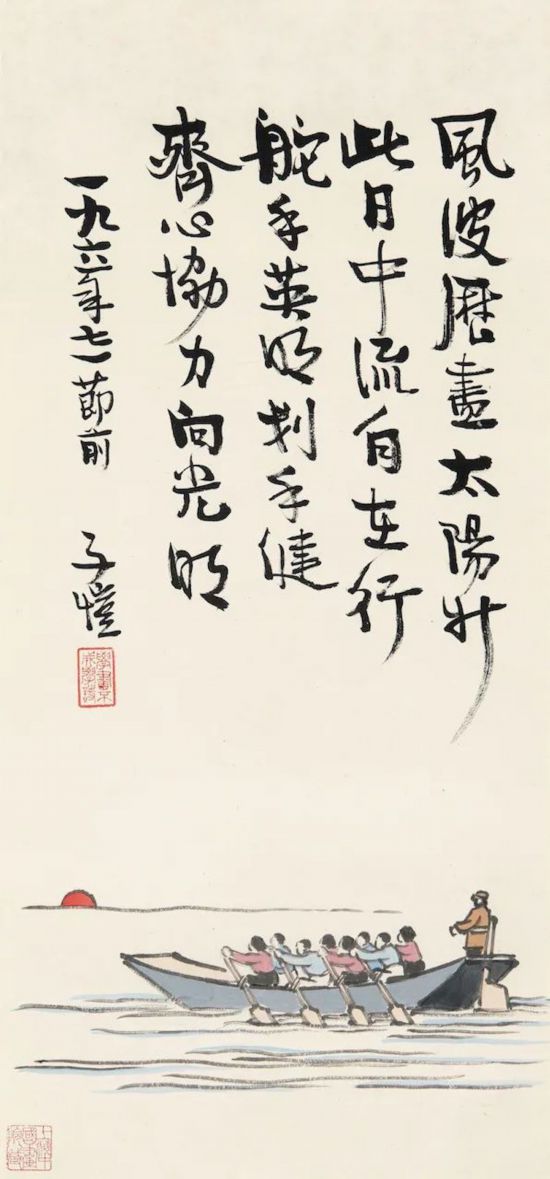 風波歷盡太陽升
此日中流自在行
舵手英明划手健
齊心協力向光明
一九六六年七一節前
子愷